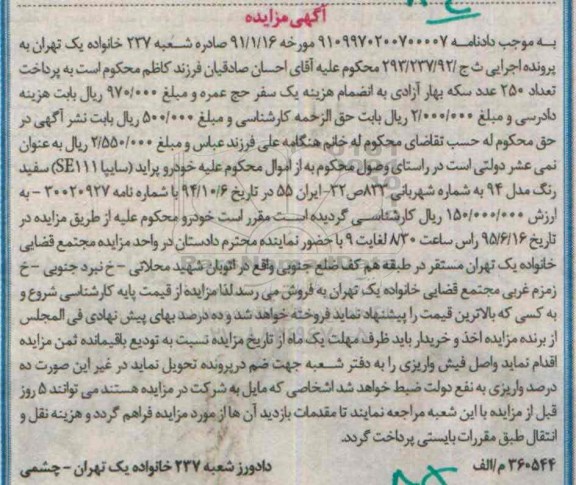 آگهی مزایده
به موجب دادنامه ۹۱۰۹۹۷۰۲۰۰۷۰۰۰۰۷ مورخه ۹۱/۱/۱۶ صادره شعبه ۲۳۷ خانواده یک تهران به
پرونده اجرایی ث ج /۲۹۳/۲۳۷/۹۲ محکوم علیه آقای احسان صادقیان فرزند کاظم محکوم است به پرداخت
تعداد ۲۵۰ عدد سکه بهار آزادی به انضمام هزینه یک سفر حج عمره و مبلغ ۹۷۰/۰۰۰ ریال بابت هزینه
دادرسی و مبلغ ۲/۰۰۰/۰۰۰ ریال بابت حق الزحمه کارشناسی و مبلغ ۵۰۰/۰۰۰ ریال بابت نشر آگهی در
حق محکوم له حسب تقاضای محکوم له خانم هنگامه علی فرزند عباس و مبلغ ۲/۵۵۰/۰۰۰ ریال به عنوان
نمی عشر دولتی است در راستای وصول محکوم به از اموال محکوم علیه خودرو پراید (سایپا SE۱۱۱) سفید
رنگ مدل ۹۴ به شماره شهربانی ۸۳۲ص۳۲-ایران ۵۵ در تاریخ ۹۴/۱۰/۶ با شماره نامه ۳۰۰۲۰۹۲۷ - به
ارزش ۱۵۰/۰۰۰/۰۰۰ ریال کارشناسی گردیده است مقرر است خودرو محکوم علیه از طریق مزایده در
تاریخ ۹۵/۶/۱۶ راس ساعت ۸/۳۰ لغایت ۹ با حضور نماینده محترم دادستان در واحد مزایده مجتمع قضایی
خانواده یک تهران مستقر در طبقه هم کف ضلع جنوبی واقع در اتوبان شهید محلاتی - خ نبرد جنوبی - خ
زمزم غربی مجتمع قضایی خانواده یک تهران به فروش می رسد لذا مزایده از قیمت پایه کارشناسی شروع و
به کسی که بالاترین قیمت را پیشنهاد نماید فروخته خواهد شد و ده درصد بهای پیش نهادی فی المجلس
از برنده مزایده اخذ و خریدار باید ظرف مهلت یک ماه از تاریخ مزایده نسبت به تودیع باقیمانده ثمن مزایده
اقدام نماید واصل فیش واریزی را به دفتر شعبه جهت ضم در پرونده تحویل نماید در غیر این صورت ده
درصد واریزی به نفع دولت ضبط خواهد شد اشخاصی که مایل به شرکت در مزایده هستند می توانند ۵ روز
قبل از مزایده با این شعبه مراجعه نمایند تا مقدمات بازدید آن ها از مورد مزایده فراهم گردد و هزینه نقل و
انتقال طبق مقررات بایستی پرداخت گردد.
۳۶۰۵۴۴ م/الف
دادورز شعبه ۲۳۷ خانواده یک تهران - چشمی